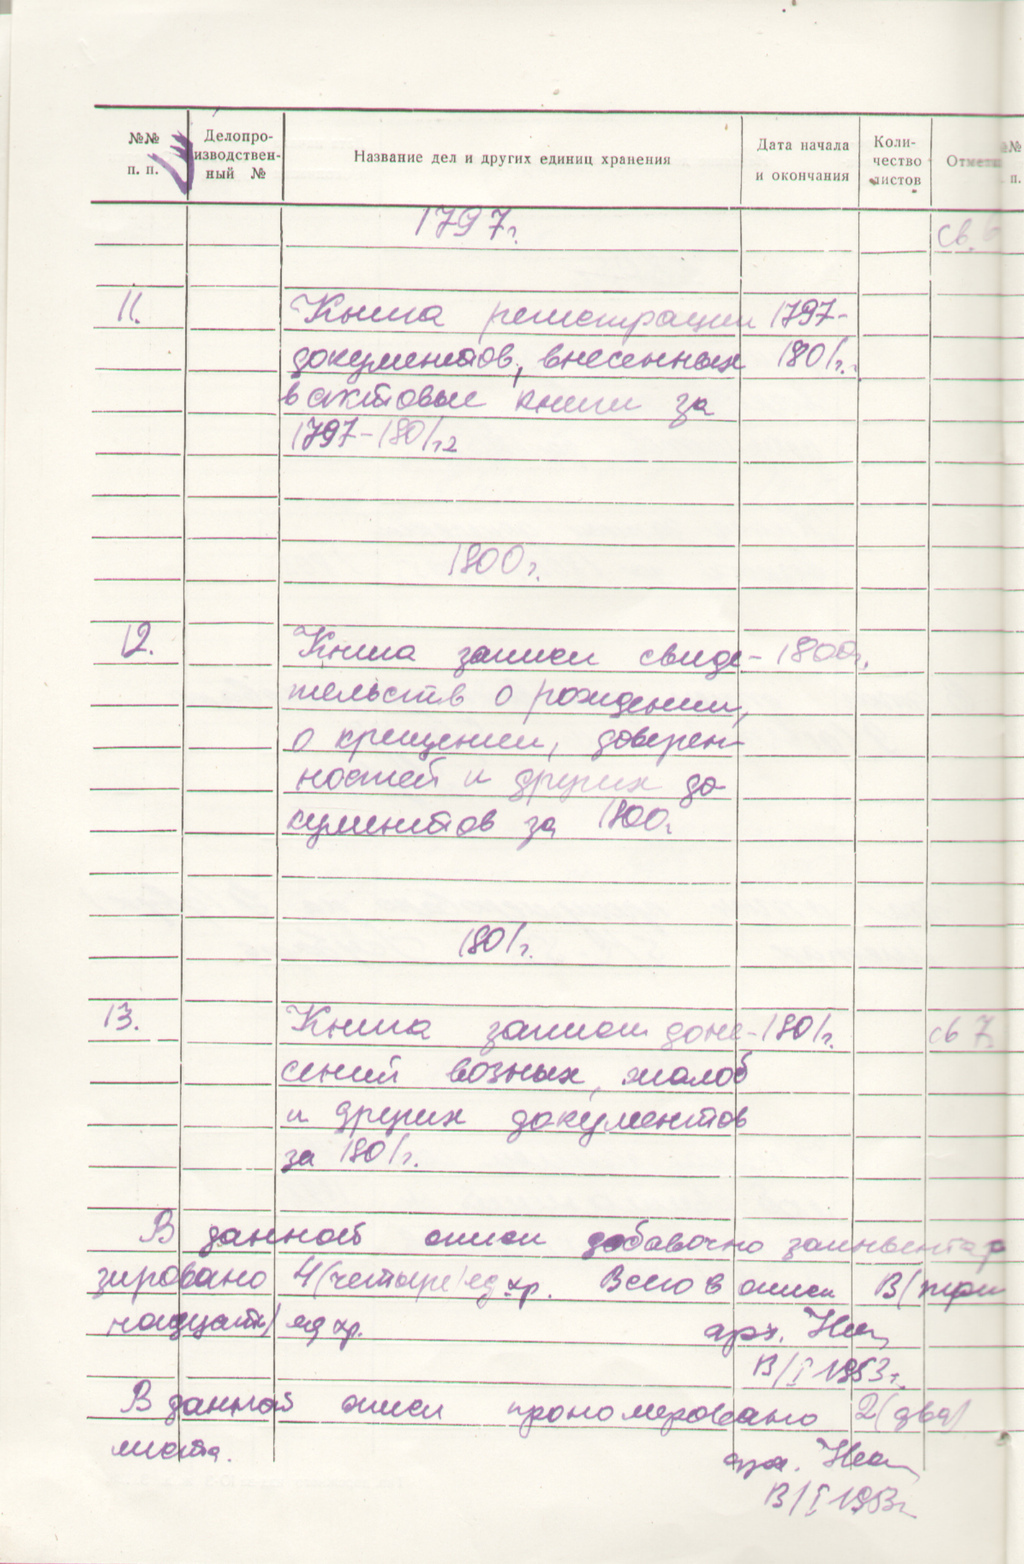 №№ п. п.
Делопро-
изводствен-
ный №
Название дел и других единиц хранения
Дата начала
и окончания
Коли-
чество
листов
Отмет
№
п.
1797г.
св. 6
11. Книга регистрации 1797-
документов, внесенных 1801г.
в актовые книги за
1797-1801гг
1800г.
12. Книга записи свиде- 1800г.
тельств о рождении,
о крещении, доверен-
ностей и других до
кументов за 1800г.
1801г.
13. Книга записи доне- 1801г. св 7.
сений возных, жалоб
и других документов
за 1801г.
В данной описи добавочно заинвентар
зировано 4(четыре) ед. хр. Всего в описи 13(три
надцать) ед хр. арх.
13/I 1953г.
В данной описи прономеровано 2(два)
листа. арх.
13/I 1953г